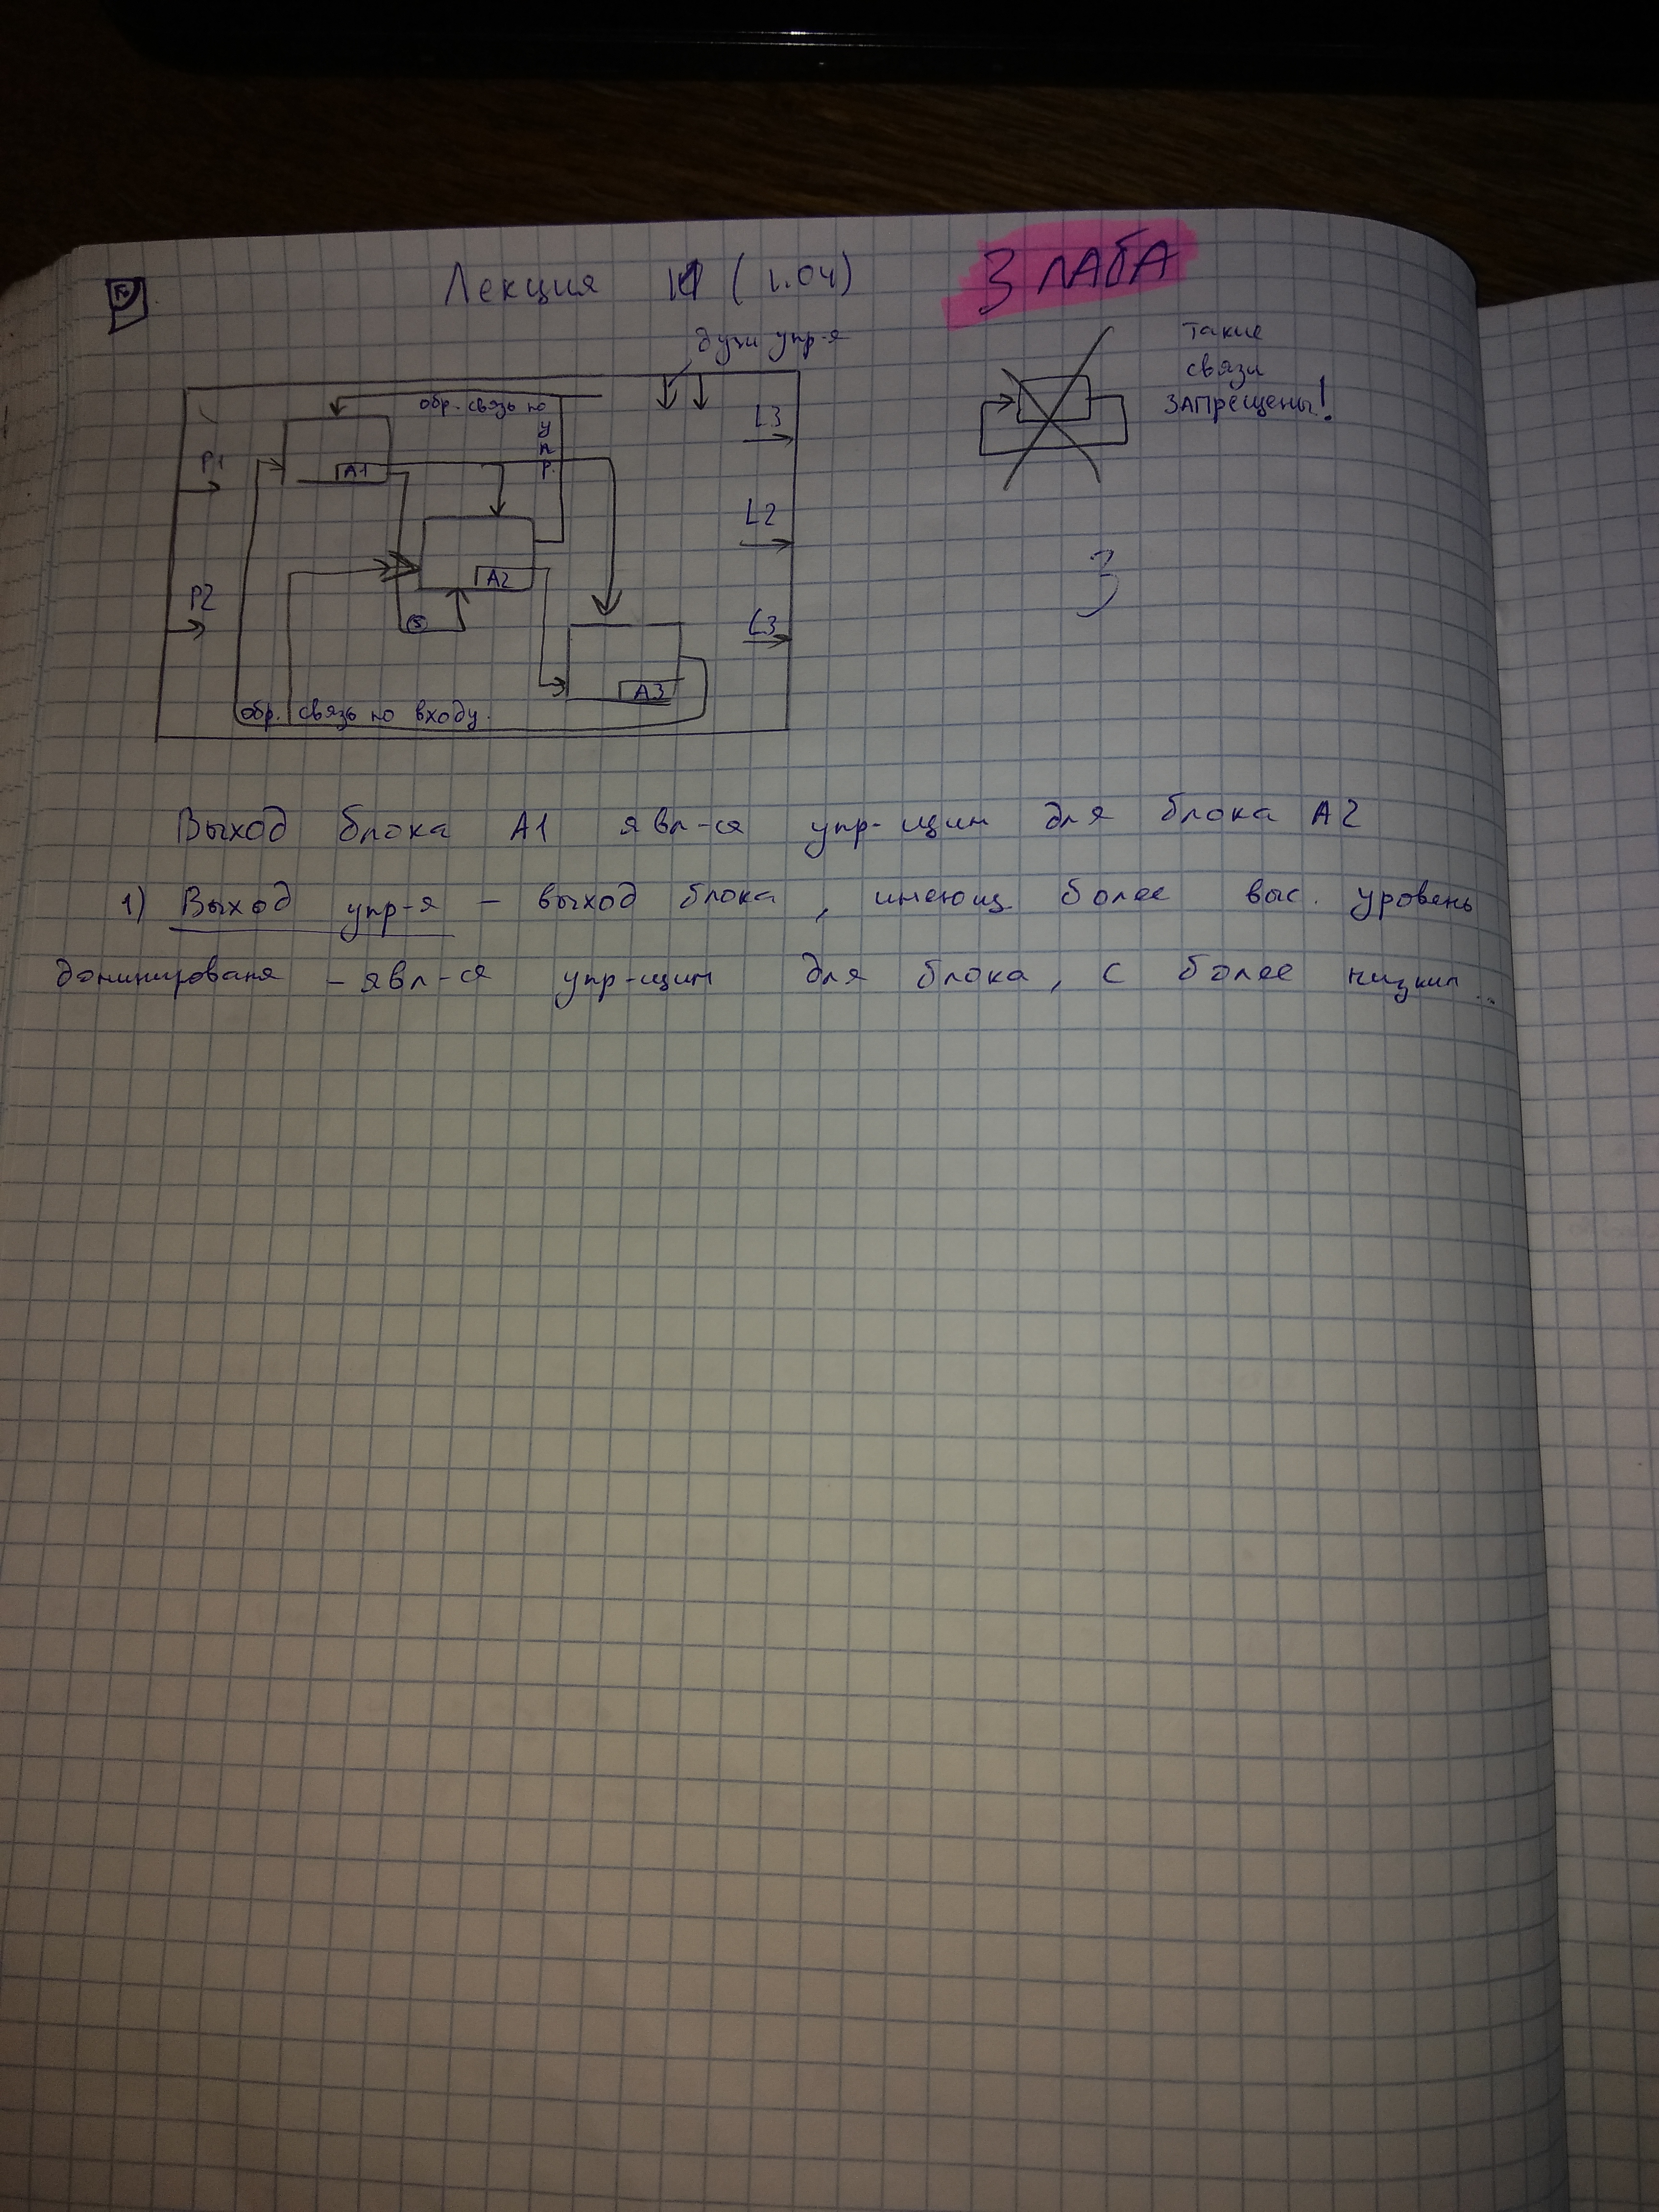 Лекция (1.04)
3 ЛАБА
дуги упр-я
такие
связи
ЗАПРЕЩЕНЫ!
обр. связь по
У
П
Р.
P1
A1
L3
L2
A2
P2
L3
3
A3
обр. связь по входу.
Выход блока A1 явл-ся упр-щим для блока A2
1) Выход упр-я – выход блока, имеющ более выс. уровень
доминированя – явл-ся упр-щим для блока, с более низким...